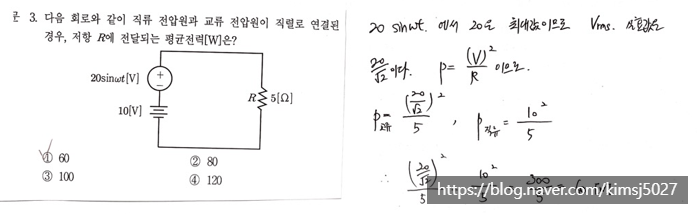 문 3. 다음 회로와 같이 직류 전압원과 교류 전압원이 직렬로 연결된
경우, 저항 R에 전달되는 평균전력[W]은?
20sinωt[V]
10[V]
R
5[Ω]
① 60
② 80
③ 100
④ 120
20 sinωt. 에서 20은 최대값이므로 Vrms. 실효값은
20/√2 이다. P = (V)²/R 이므로.
P교류 = (20/√2)²/5 , P직류 = 10²/5
∴ (20/√2)²/5 10²/5 300/5
https://blog.naver.com/kimsj5027